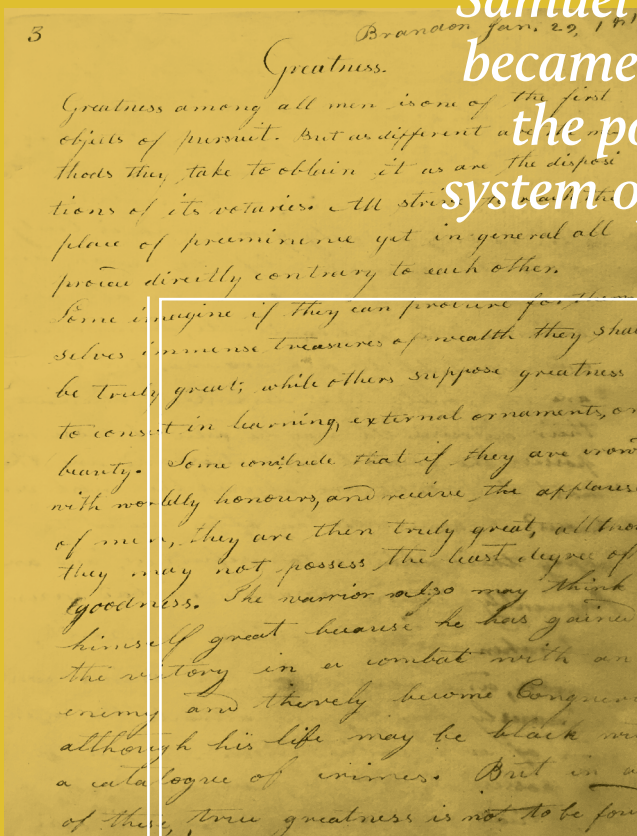 3
Brandon Jan. 29, 181
Greatness.
Samuel
became
the po
system o
Greatness among all men is one of the first
objects of pursuit. But as different are the m-
thods they take to obtain it as are the disposi
tions of its votaries. All strive to reach the
place of preeminence yet in general all
directly contrary to each other.
Some imagine if they can procure for them
selves immense treasures of wealth they shal
be truly great; while others suppose greatness
to consist in learning, external ornaments, or
beauty. Some conclude that if they are crow
with worldly honours, and receive the applause
of men, they are then truly great, altho
they may not possess the least degree of
goodness. The warrior also may think
himself great because he has gained
the victory in a combat with an
enemy and thereby become Conquer
although his life may be black wi
a catalogue of crimes. But in a
of these, true greatness is not to be fou